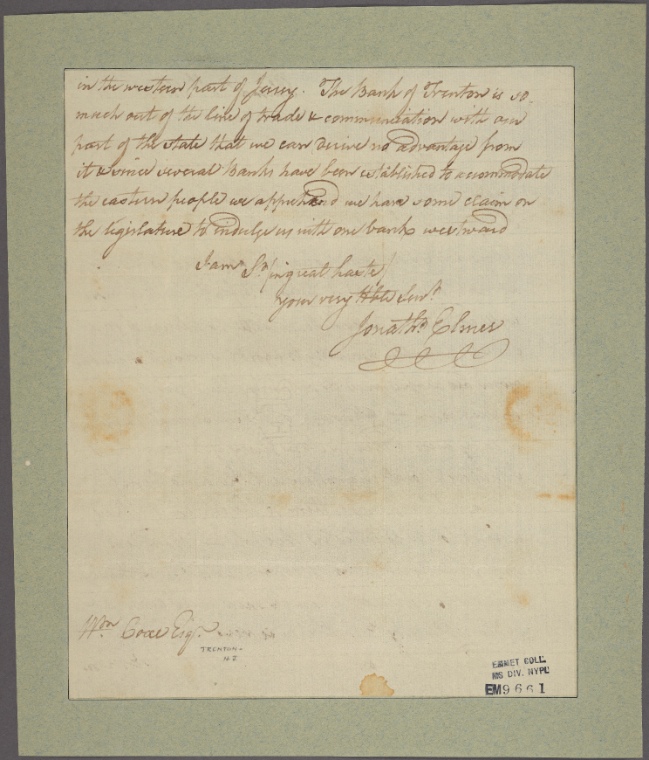 in the western part of Jersey. The Bank of Trenton is so
much out of the line of trade & communication with our
part of the state that we can derive no advantage from
it & since several Banks have been established to accommodate
the eastern people we apprehend we have some claim on
the legislature to indulge us with one bank westward
I am Sr (in great haste)
your very Hble Servt
Jonathn Elmer
Wm Coxe Esqr.
TRENTON.
N.J.
EMMET COLL.
MS DIV. NYPL
EM9661